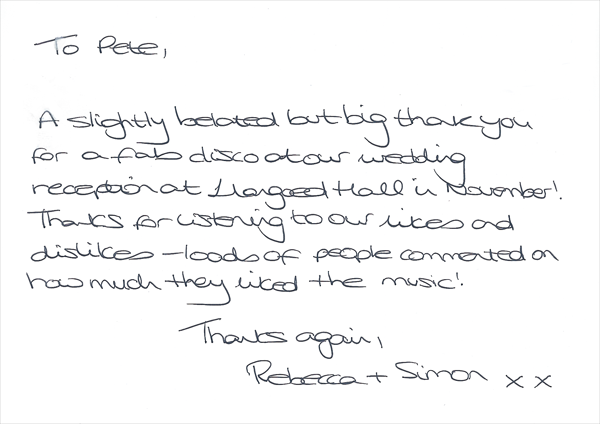 To Pete,
A slightly belated but big thank you
for a fab disco at our wedding
reception at Llangoed Hall in November!
Thanks for listening to our likes and
dislikes – loads of people commented on
how much they liked the music!
Thanks again,
Rebecca + Simon x x